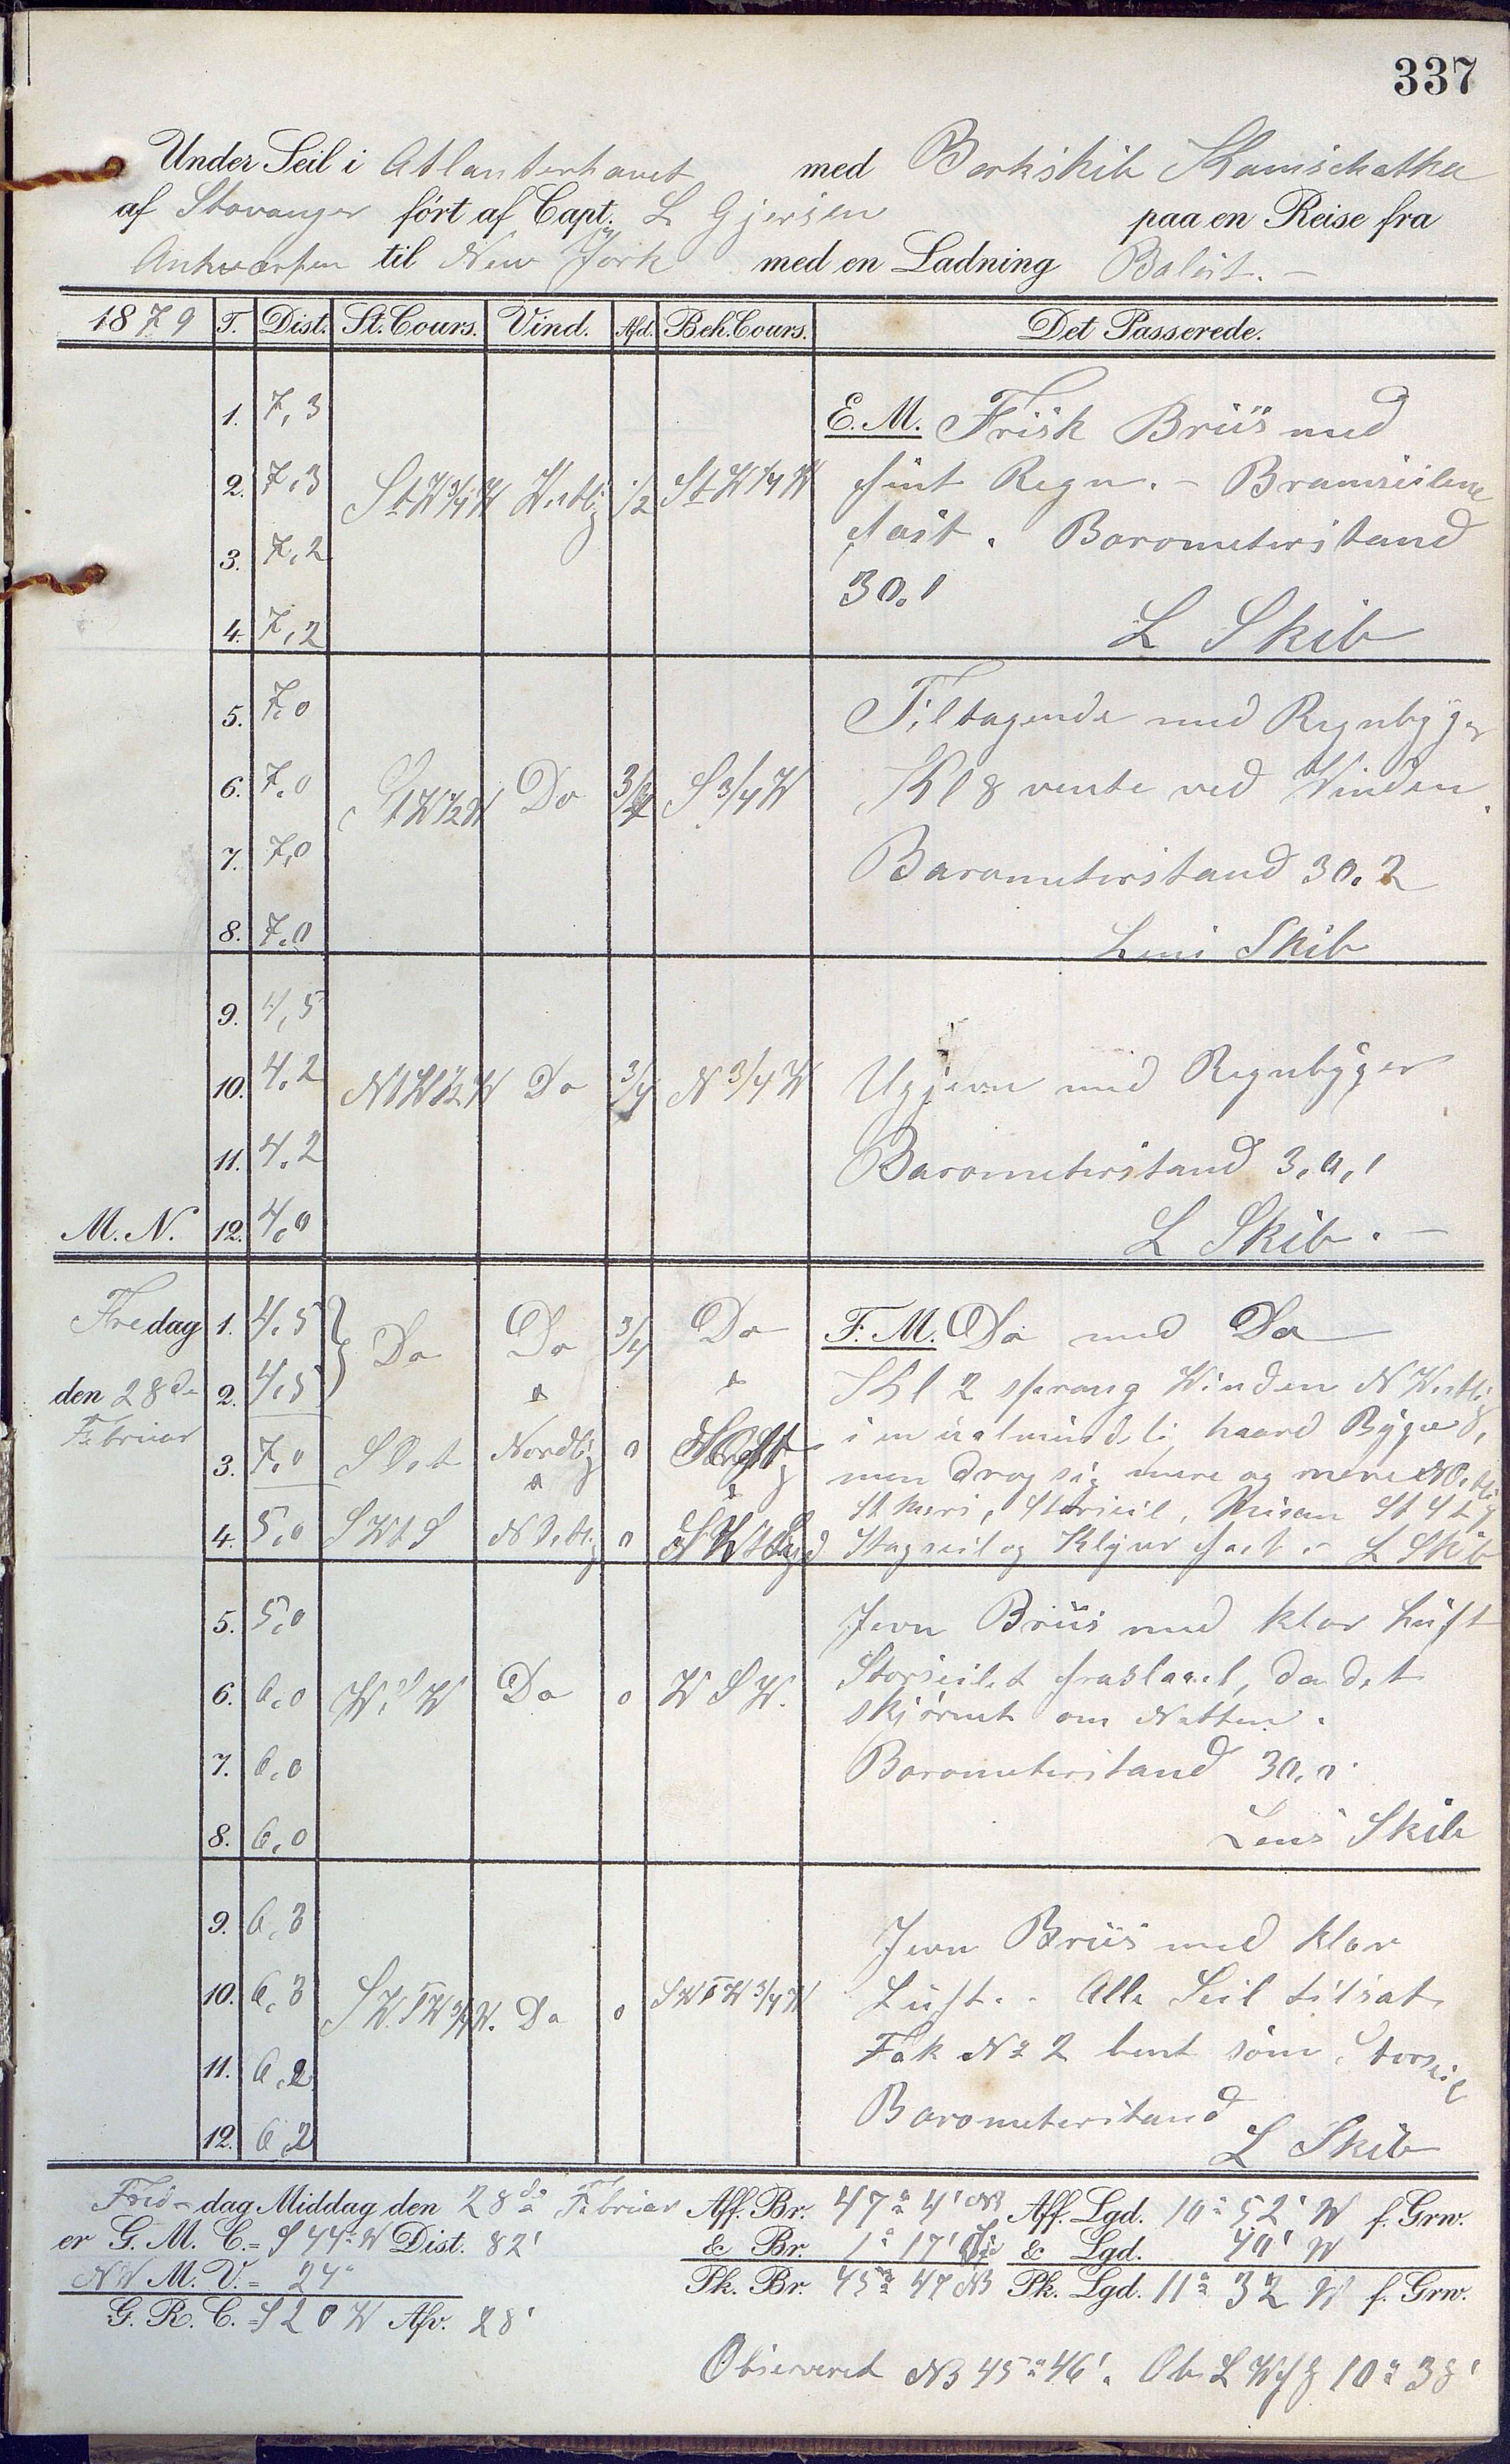 337
Under Seil i Atlanterhavet med Barkskib Kamschatka
af Stavanger ført af Capt. L Gjersen paa en Reise fra
Antwerpen til New York med en Ladning Balast. –
1879 T. Dist. St. Cours. Vind. Afd. Beh. Cours. Det Passerede.
1. 7,3 E. M. Frisk Briis med
2. 7,3 StW 3/4 W Vestlig 1/2 StW 1/4 W fint Regn. – Bramseilene
3. 7,2 fast. Barometerstand
30,1
4. 7,2 L Skib
5. 7,0 Tiltagende med Regnbyger
6. 7,0 StW 1/2 W Do 3/4 S 3/4 W Kl 8 vente ved Vinden.
7. 7,0 Barometerstand 30.2
8. 7,0 Lens Skib
9. 4,5
10. 4,2 NtW 1/2 W Do 3/4 N 3/4 W Ujevn med Regnbyger
11. 4,2 Barometerstand 3.0,1
M. N. 12. 4,0 L Skib. –
Fredag 1. 4,5 Do Do 3/4 Do F. M. Do med Do
den 28de 2. 4,5 Kl 2 sprang Winden NVestlig
Februar i en ualmindeli haard Byge
3. 7,0 Nordlig 0 men drog sig mere og mere
4. 5,0 SWtS 0 Storseil, Misan
Stagseil og Klyver fast. – L Skib
5. 5,0 Jevn Briis med klar Luft
6. 6,0 Do 0 W S W. Storseilet fraslaaet, da det
skjørnet om Natten.
7. 6,0 Barometerstand 30,0
8. 6,0 Lens Skib
9. 6,3 Jevn Briis med klar
10. 6,3 SWtW 3/4 W. Do 0 SWtW 3/4 W Luft. . Alle Seil tilsat
11. 6,2 Fok No 2 bent som Storseil
Barometerstand
12. 6,2 L Skib
Fre-dag Middag den 28de Februar Aff. Br. 47° 4' NB Aff. Lgd. 10° 52' W f. Grw.
er G. M. C. = S 44° W Dist. 82' & Br. 1° 17' & Lgd. 40' W
NW M. V. = 24° Pk. Br. 45° 47 NB Pk. Lgd. 11° 32 W f. Grw.
G. R. C. = S 20 W Afv. 28'
Observeret NB 45° 46'. Ob. L 10° 38'